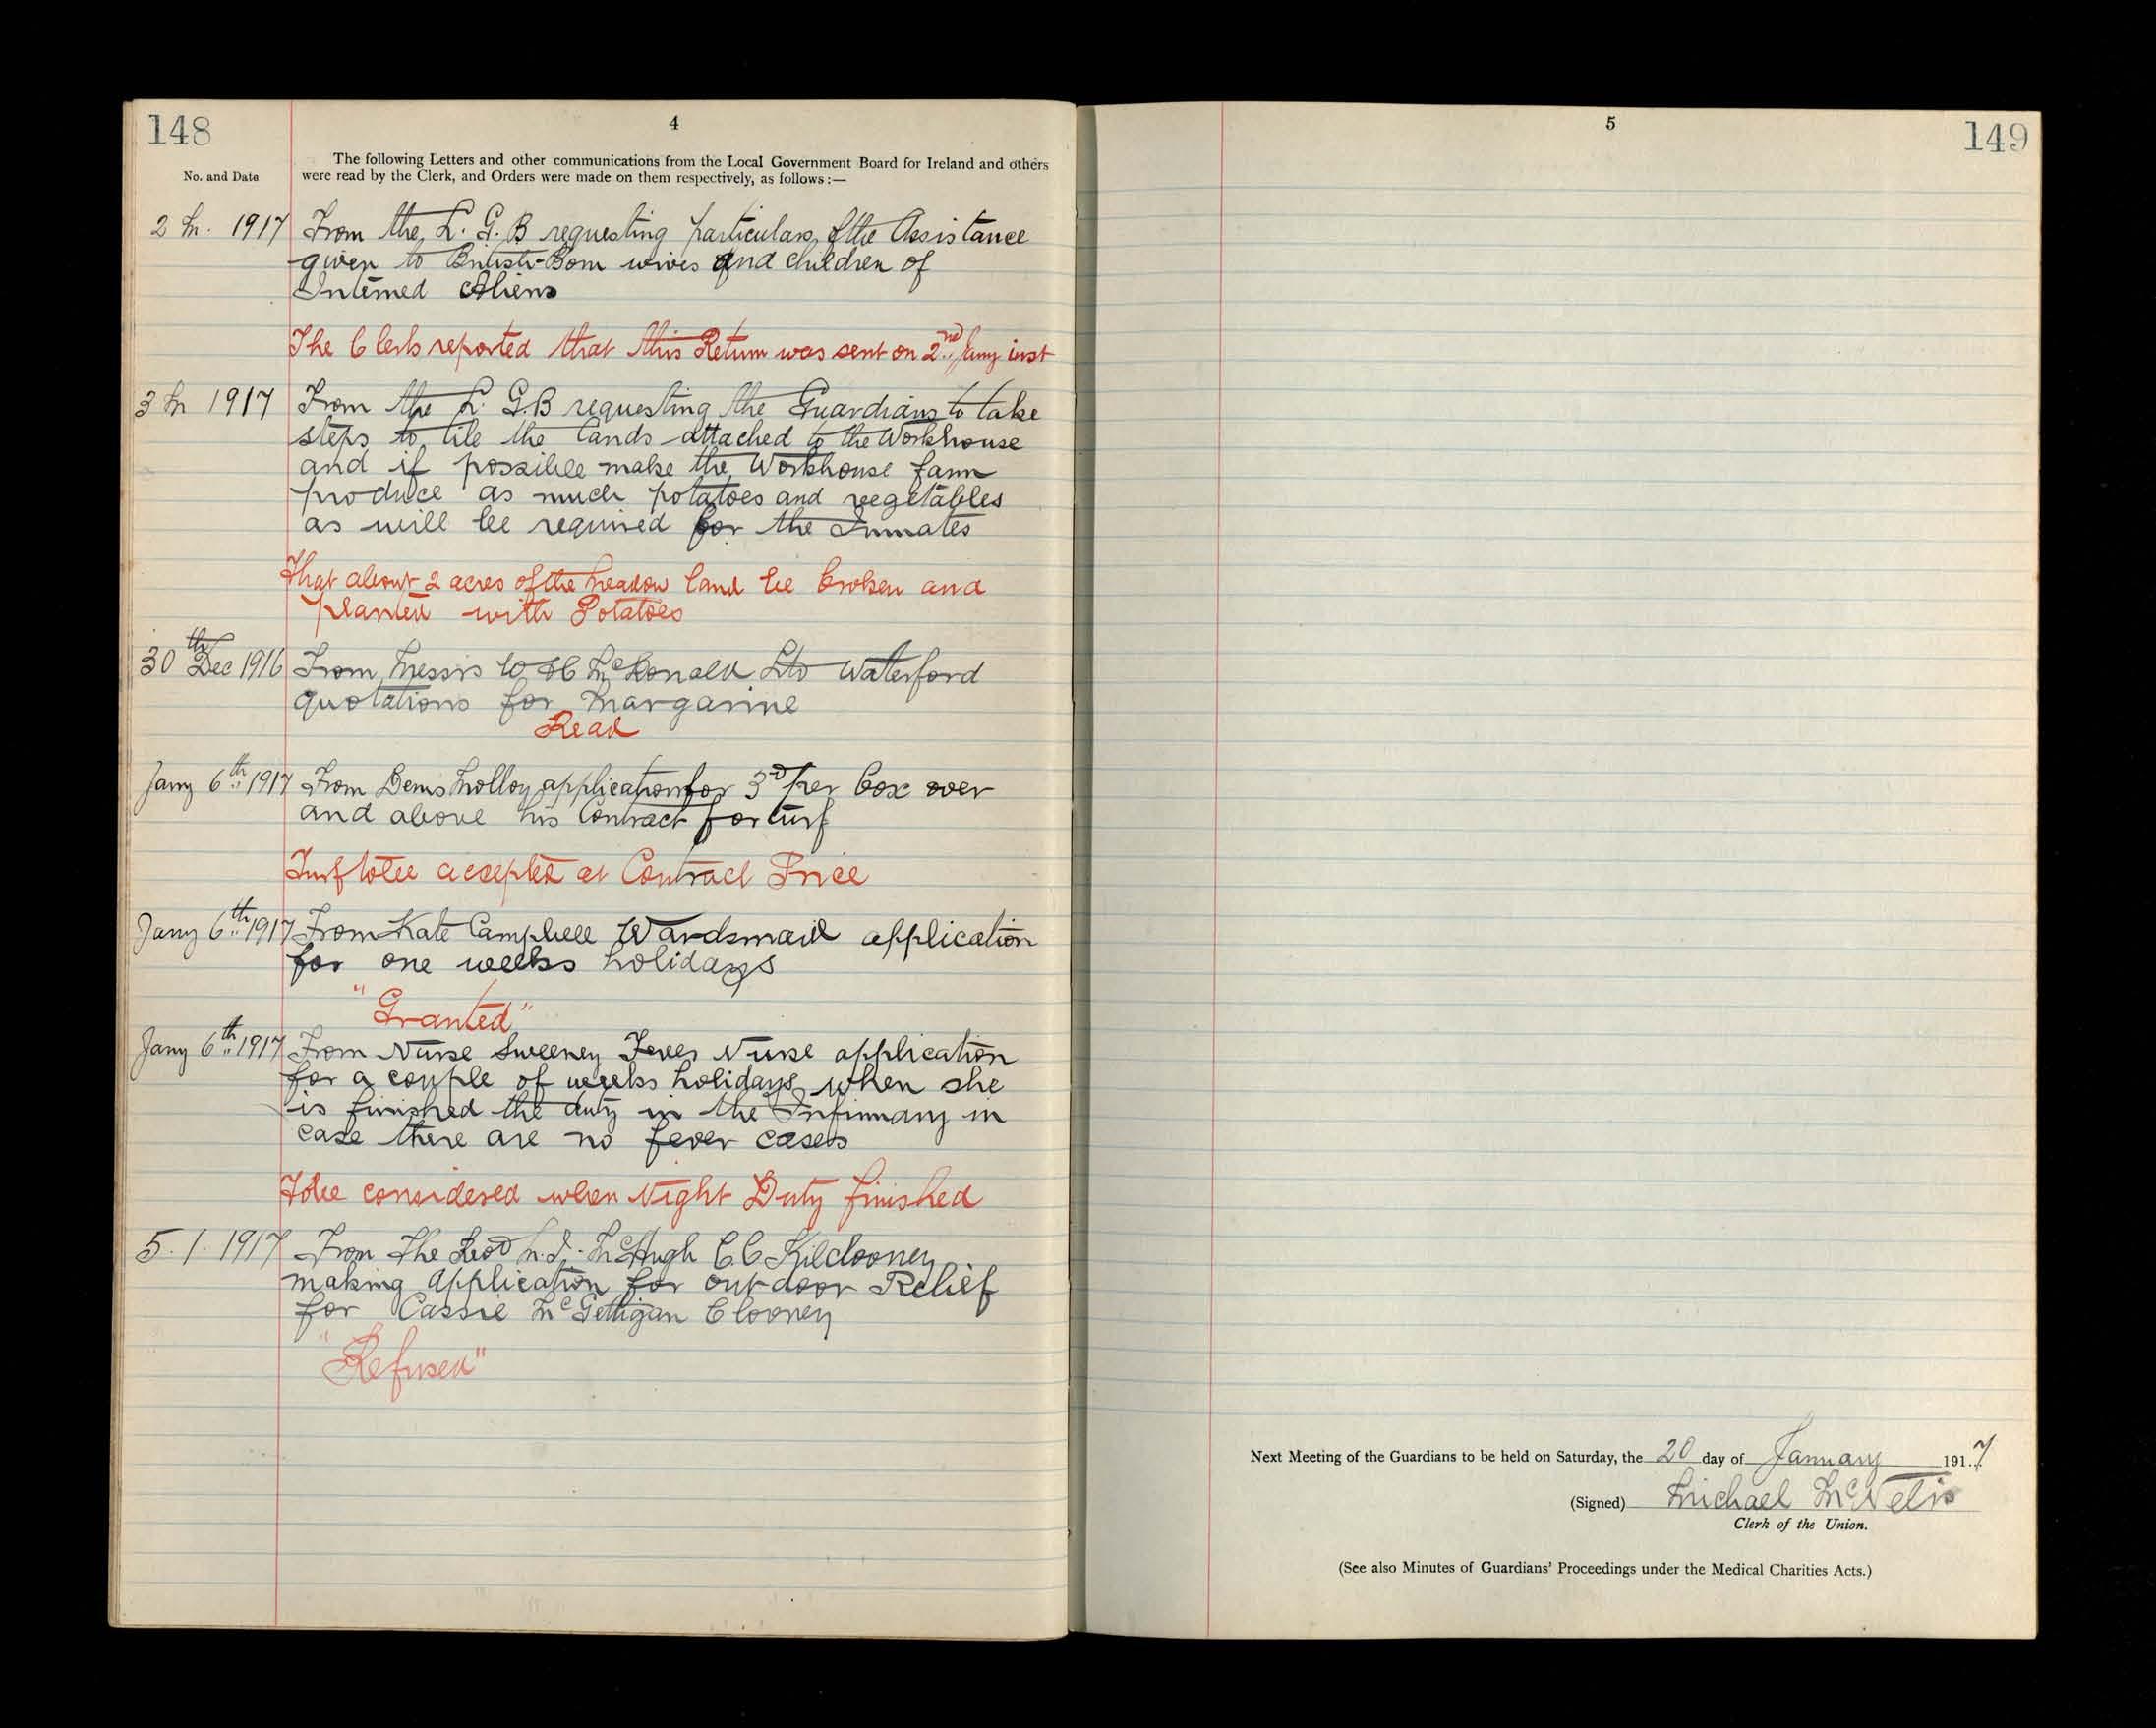 148
4
No. and Date
The following Letters and other communications from the Local Government Board for Ireland and others
were read by the Clerk, and Orders were made on them respectively, as follows :—
2 M. 1917 From the L. G. B requesting particulars of the Assistance
given to British-Born wives and children of
Interned Aliens
The Clerk reported that this Return was sent on 2nd Jany inst
3 M 1917 From the L. G.B requesting the Guardians to take
steps to tile the lands attached to the Workhouse
and if possible make the Workhouse farm
produce as much potatoes and vegetables
as will be required for the Inmates
That about 2 acres of the meadow land be broken and
planted with Potatoes
30th Dec 1916 From Messrs W & C McDonald Ltd Waterford
quotations for Margarine
Read
Jany 6th 1917 From Denis Molloy application for 3D per Box over
and above his Contract for turf
Turf to be accepted at Contract Price
Jany 6th 1917 From Kate Campbell Wardsmaid application
for one weeks holidays
"Granted"
Jany 6th 1917 From Nurse Sweeney Fever Nurse application
for a couple of weeks holidays when she
is finished the duty in the Infirmary in
case there are no fever cases
To be considered when Night Duty finished
5.1.1917 From The Revd M. J. McHugh C.C Kilclooney
making application for out door Relief
for Cassie McGettigan Clooney
"Refused"
5
149
Next Meeting of the Guardians to be held on Saturday, the 20 day of January 1917
(Signed) Michael McNelis
Clerk of the Union.
(See also Minutes of Guardians' Proceedings under the Medical Charities Acts.)